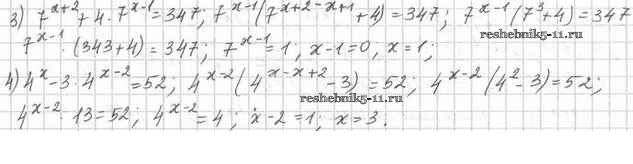 3) 7^{x+2} + 4·7^{x-1} = 347; 7^{x-1}(7^{x+2-x+1} + 4) = 347; 7^{x-1}(7^3 + 4) = 347
reshebnik5-11.ru
7^{x-1} · (343+4) = 347; 7^{x-1} = 1; x-1=0, x=1;
4) 4^x - 3·4^{x-2} = 52; 4^{x-2}(4^{x-x+2} - 3) = 52; 4^{x-2}(4^2 - 3) = 52;
reshebnik5-11.ru
4^{x-2} · 13 = 52; 4^{x-2} = 4; x-2=1; x=3.